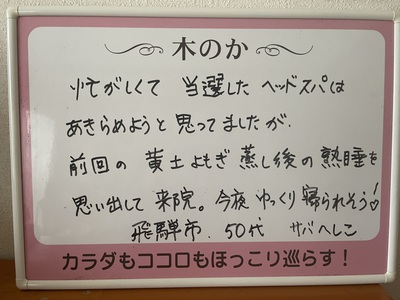 木のか
忙がしくて 当選した ヘッドスパは
あきらめようと思ってましたが、
前回の 黄土よもぎ 蒸し後の 熟睡を
思い出して 来院。今夜 ゆっくり 寝られそう♡
飛騨市 50代 サバへしこ
カラダもココロもほっこり巡らす！